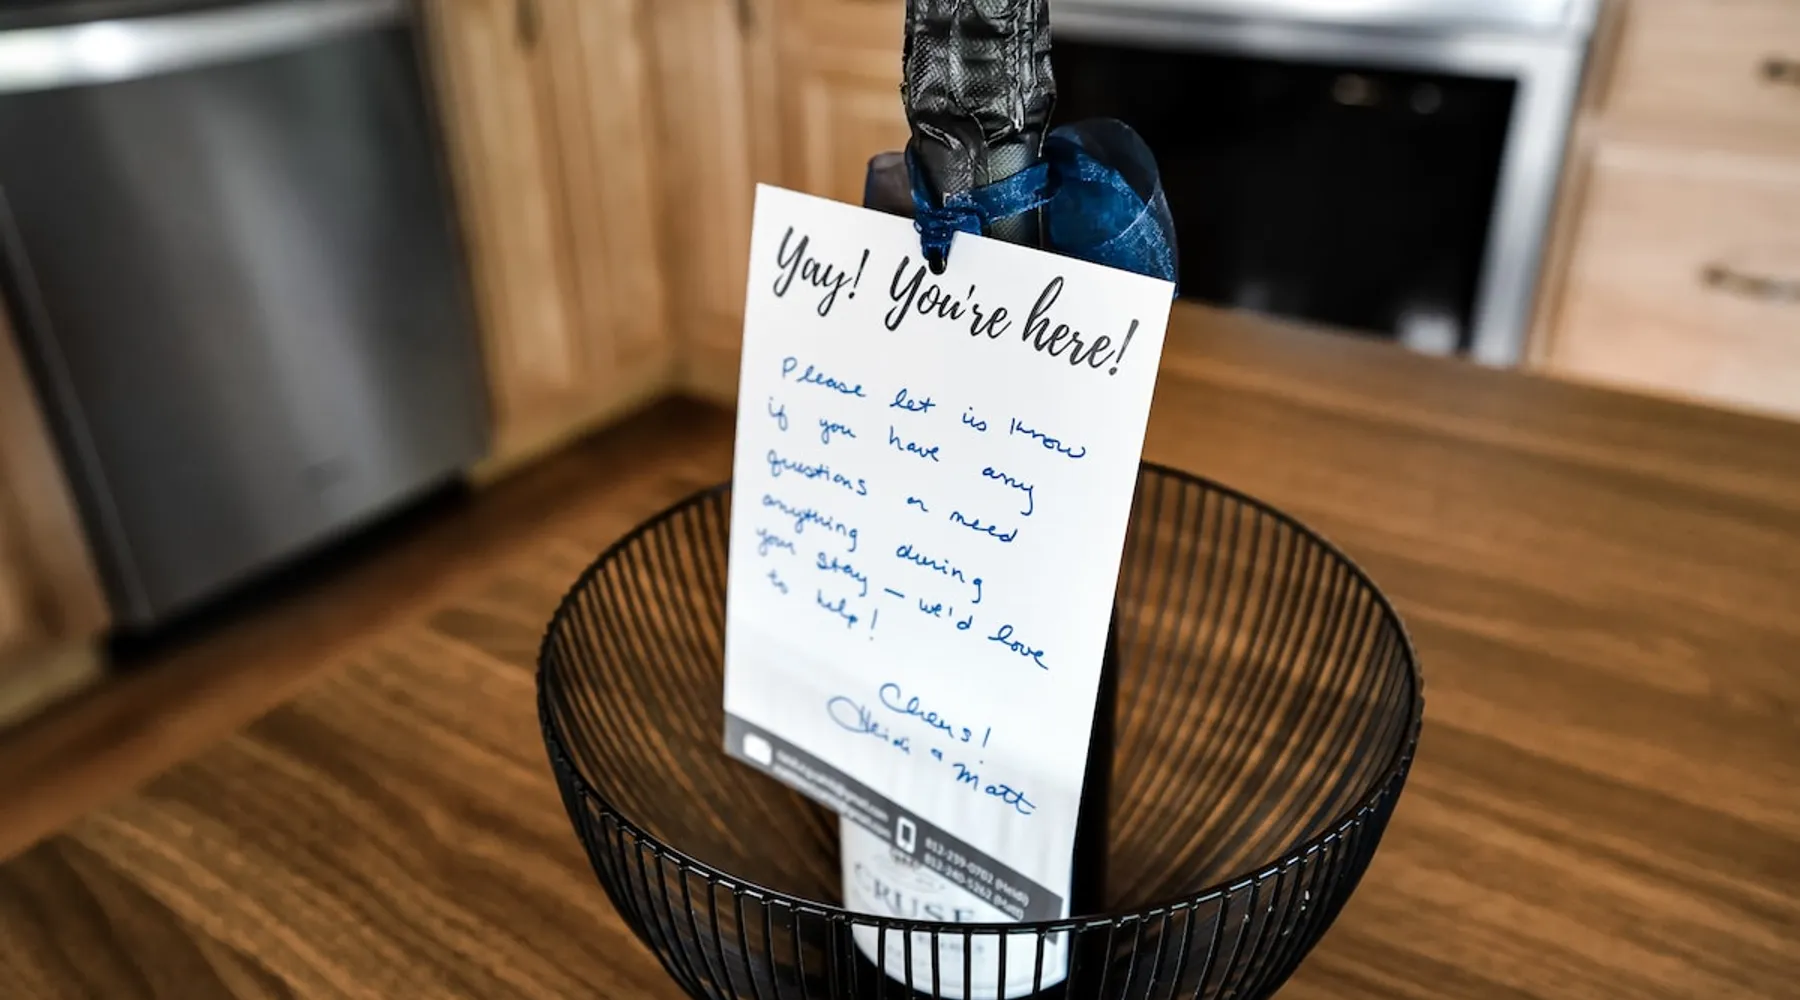 Yay! You're here!
Please let us know
if you have any
questions or need
anything during
your stay — we'd love
to help!
Cheers!
Heidi & Matt
812-239-0702 (Heidi)
812-240-5262 (Matt)
CRUSE